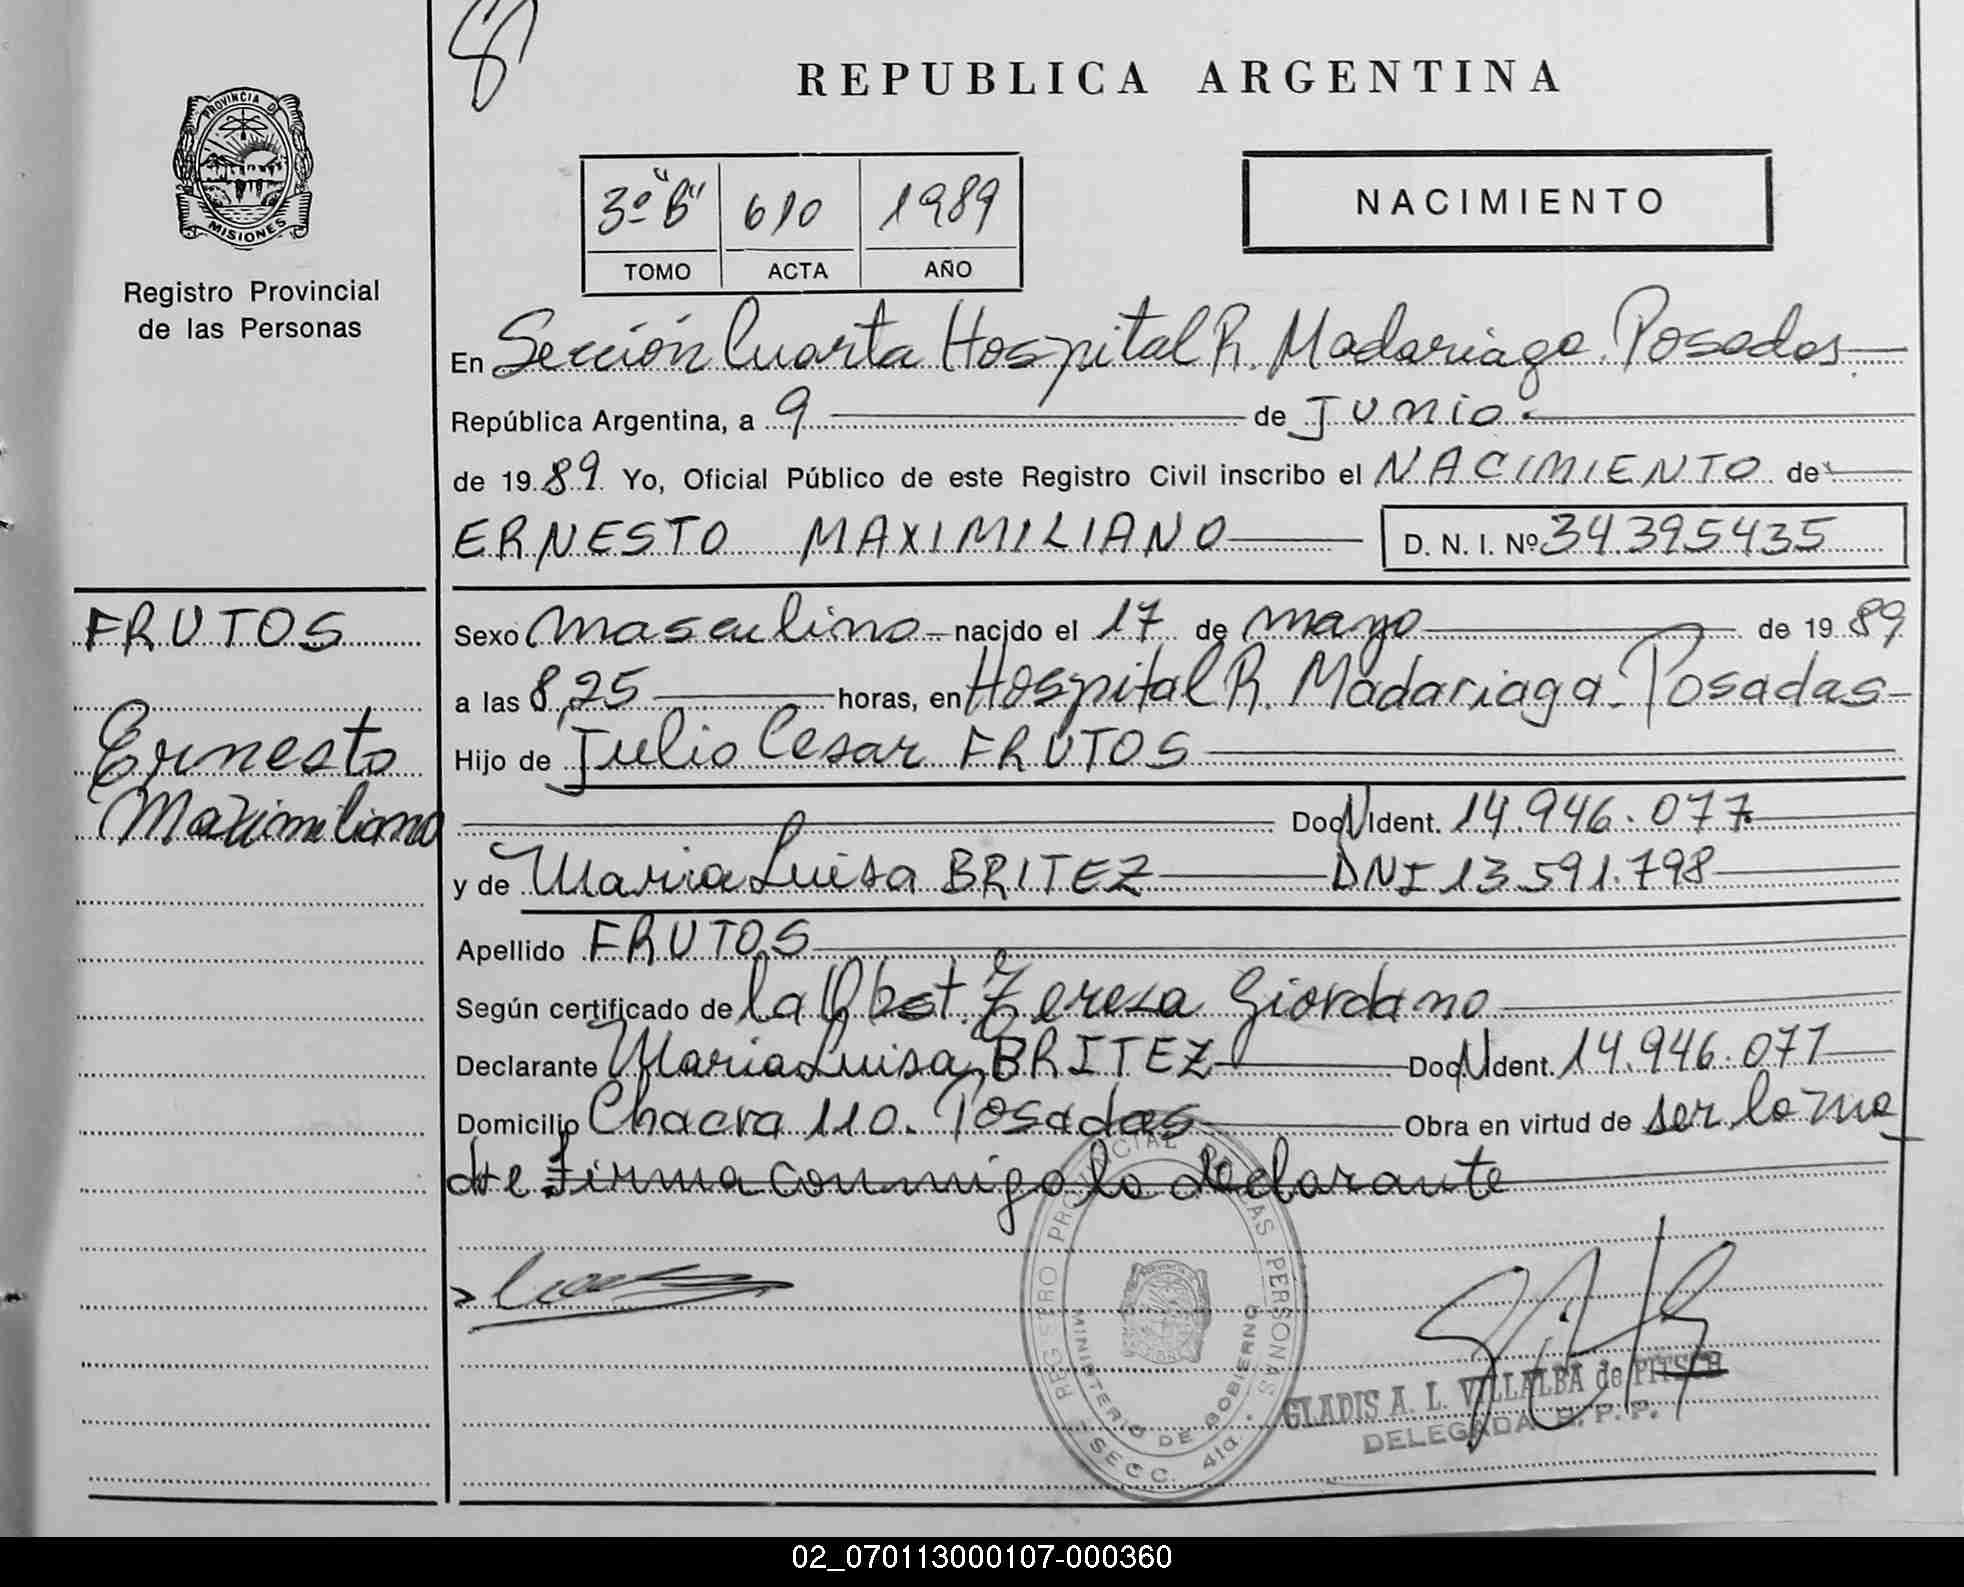 REPUBLICA ARGENTINA
PROVINCIA D
MISIONES
Registro Provincial
de las Personas
3º "B" 610 1989
TOMO ACTA AÑO
NACIMIENTO
En Sección Cuarta Hospital R. Madariaga. Posadas
República Argentina, a 9 de Junio
de 1989 Yo, Oficial Público de este Registro Civil inscribo el NACIMIENTO de
ERNESTO MAXIMILIANO D. N. I. Nº 34.395435
FRUTOS
Ernesto
Maximiliano
Sexo masculino nacido el 17 de mayo de 1989
a las 8,25 horas, en Hospital R. Madariaga. Posadas
Hijo de Julio Cesar FRUTOS
DocN Ident. 14.946.077
y de Maria Luisa BRITEZ DNI 13.591.798
Apellido FRUTOS
Según certificado de la Obst. Teresa Giordano
Declarante Maria Luisa BRITEZ DocN Ident. 14.946.077
Domicilio Chacra 110. Posadas Obra en virtud de ser la ma
dre firma conmigo la declarante
REGISTRO PROVINCIAL DE LAS PERSONAS
MINISTERIO DE GOBIERNO
SECC. 4ta.
GLADIS A. L. VILLALBA de PITSCH
DELEGADA R. P. P.
02_070113000107-000360